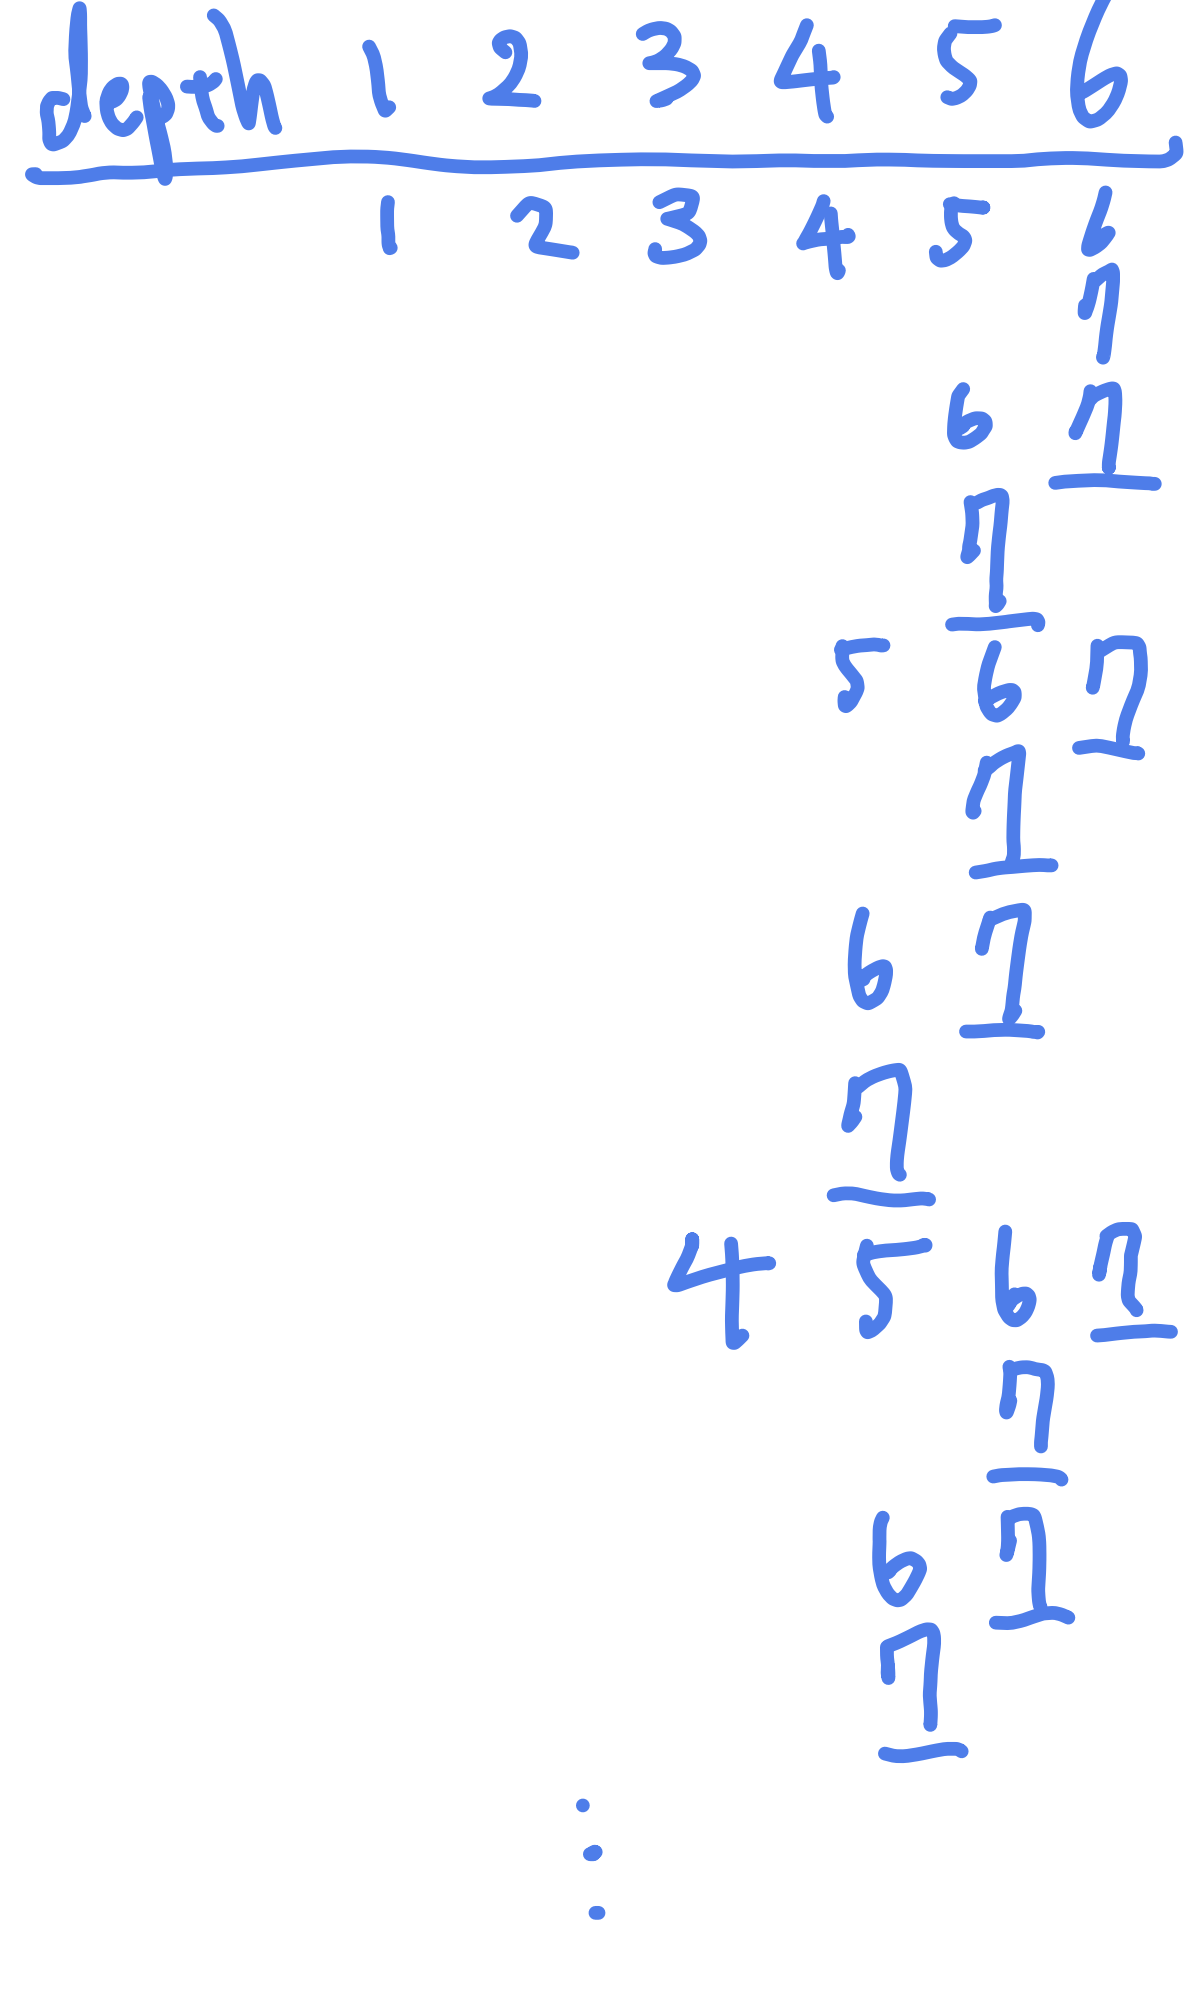 depth 1 2 3 4 5 6
1 2 3 4 5 6
7
6 7
7
5 6 7
7
6 7
7
4 5 6 7
7
6 7
7